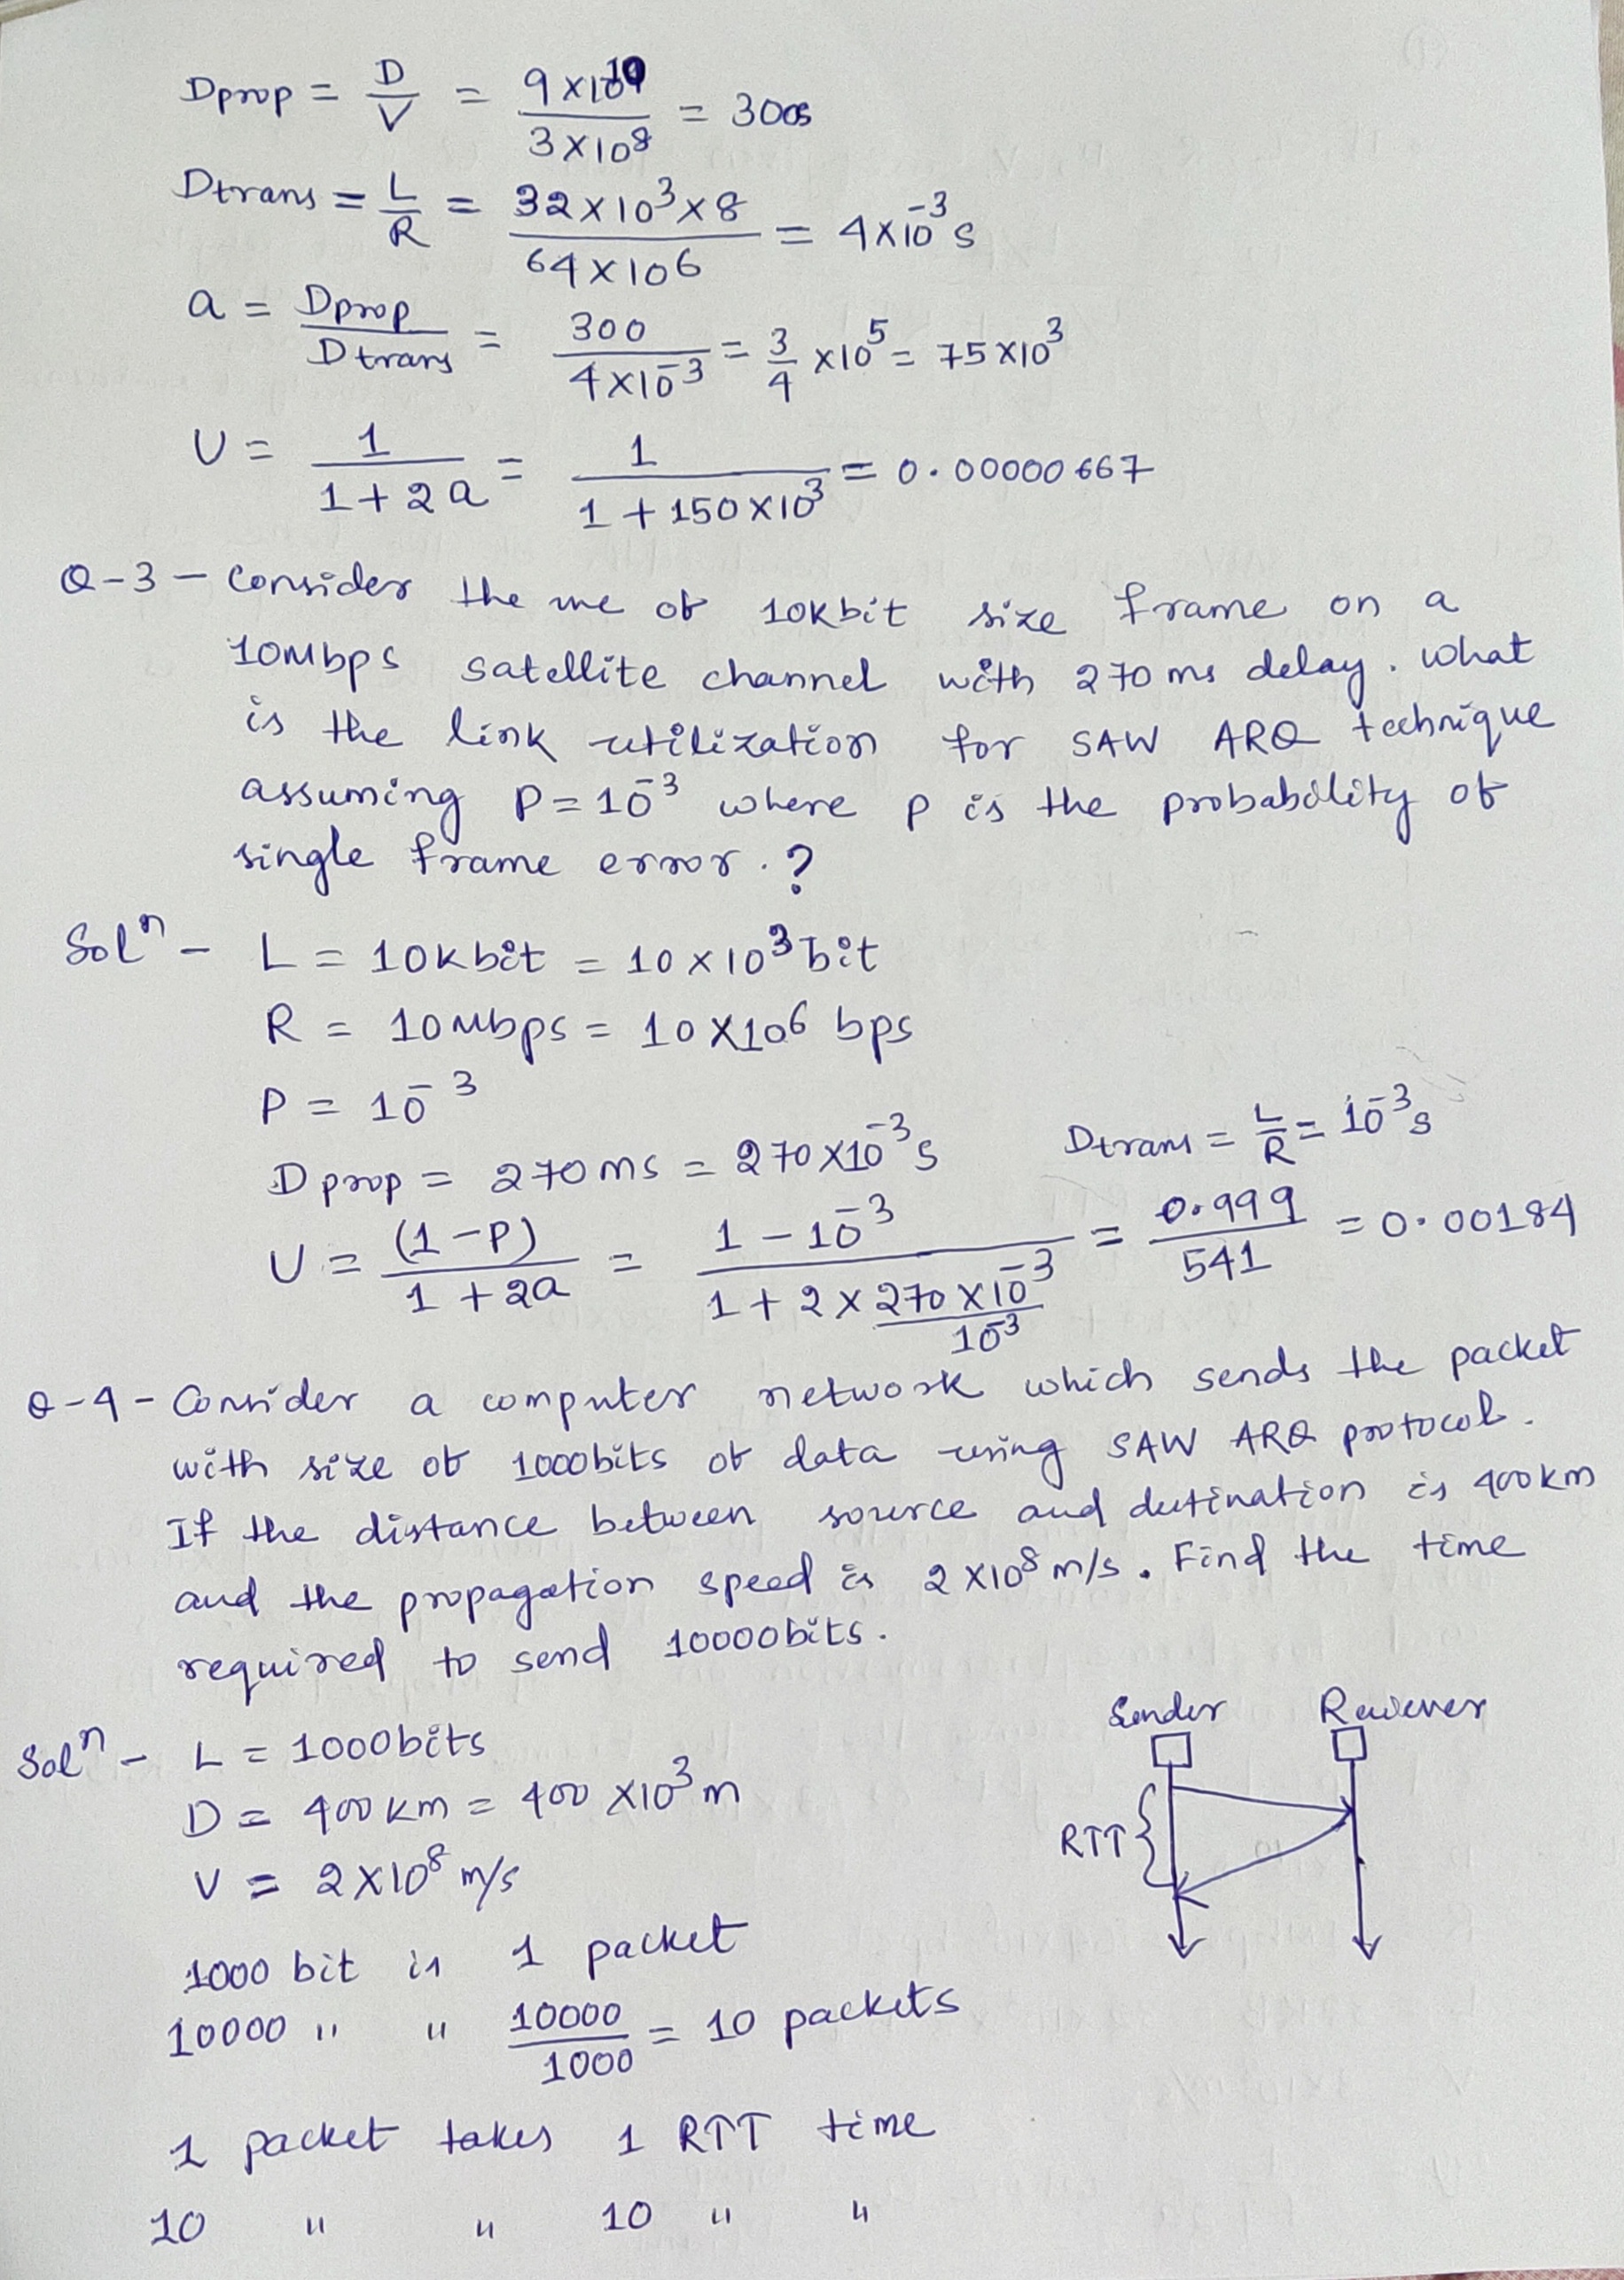 Dprop = D/V = 9×10^10 / 3×10^8 = 300s
Dtrans = L/R = 32×10^3×8 / 64×10^6 = 4×10^-3 s
a = Dprop/Dtrans = 300 / 4×10^-3 = 3/4 ×10^5 = 75×10^3
U = 1 / 1+2a = 1 / 1+150×10^3 = 0.00000667
Q-3 - Consider the use of 10Kbit size frame on a
10Mbps satellite channel with 270 ms delay. What
is the link utilization for SAW ARQ technique
assuming P=10^-3 where p is the probability of
single frame error.?
Sol^n - L = 10kbit = 10×10^3 bit
R = 10Mbps = 10×10^6 bps
P = 10^-3
Dprop = 270ms = 270×10^-3 s Dtrans = L/R = 10^-3 s
U = (1-P) / 1+2a = 1-10^-3 / 1+2×270×10^-3/10^-3 = 0.999/541 = 0.00184
Q-4 - Consider a computer network which sends the packet
with size of 1000bits of data using SAW ARQ protocol.
If the distance between source and destination is 400km
and the propagation speed is 2×10^8 m/s. Find the time
required to send 10000bits.
Sender Reciever
RTT
Sol^n - L = 1000bits
D = 400 km = 400 ×10^3 m
V = 2×10^8 m/s
1000 bit is 1 packet
10000 " " 10000/1000 = 10 packets
1 packet takes 1 RTT time
10 " " 10 " "